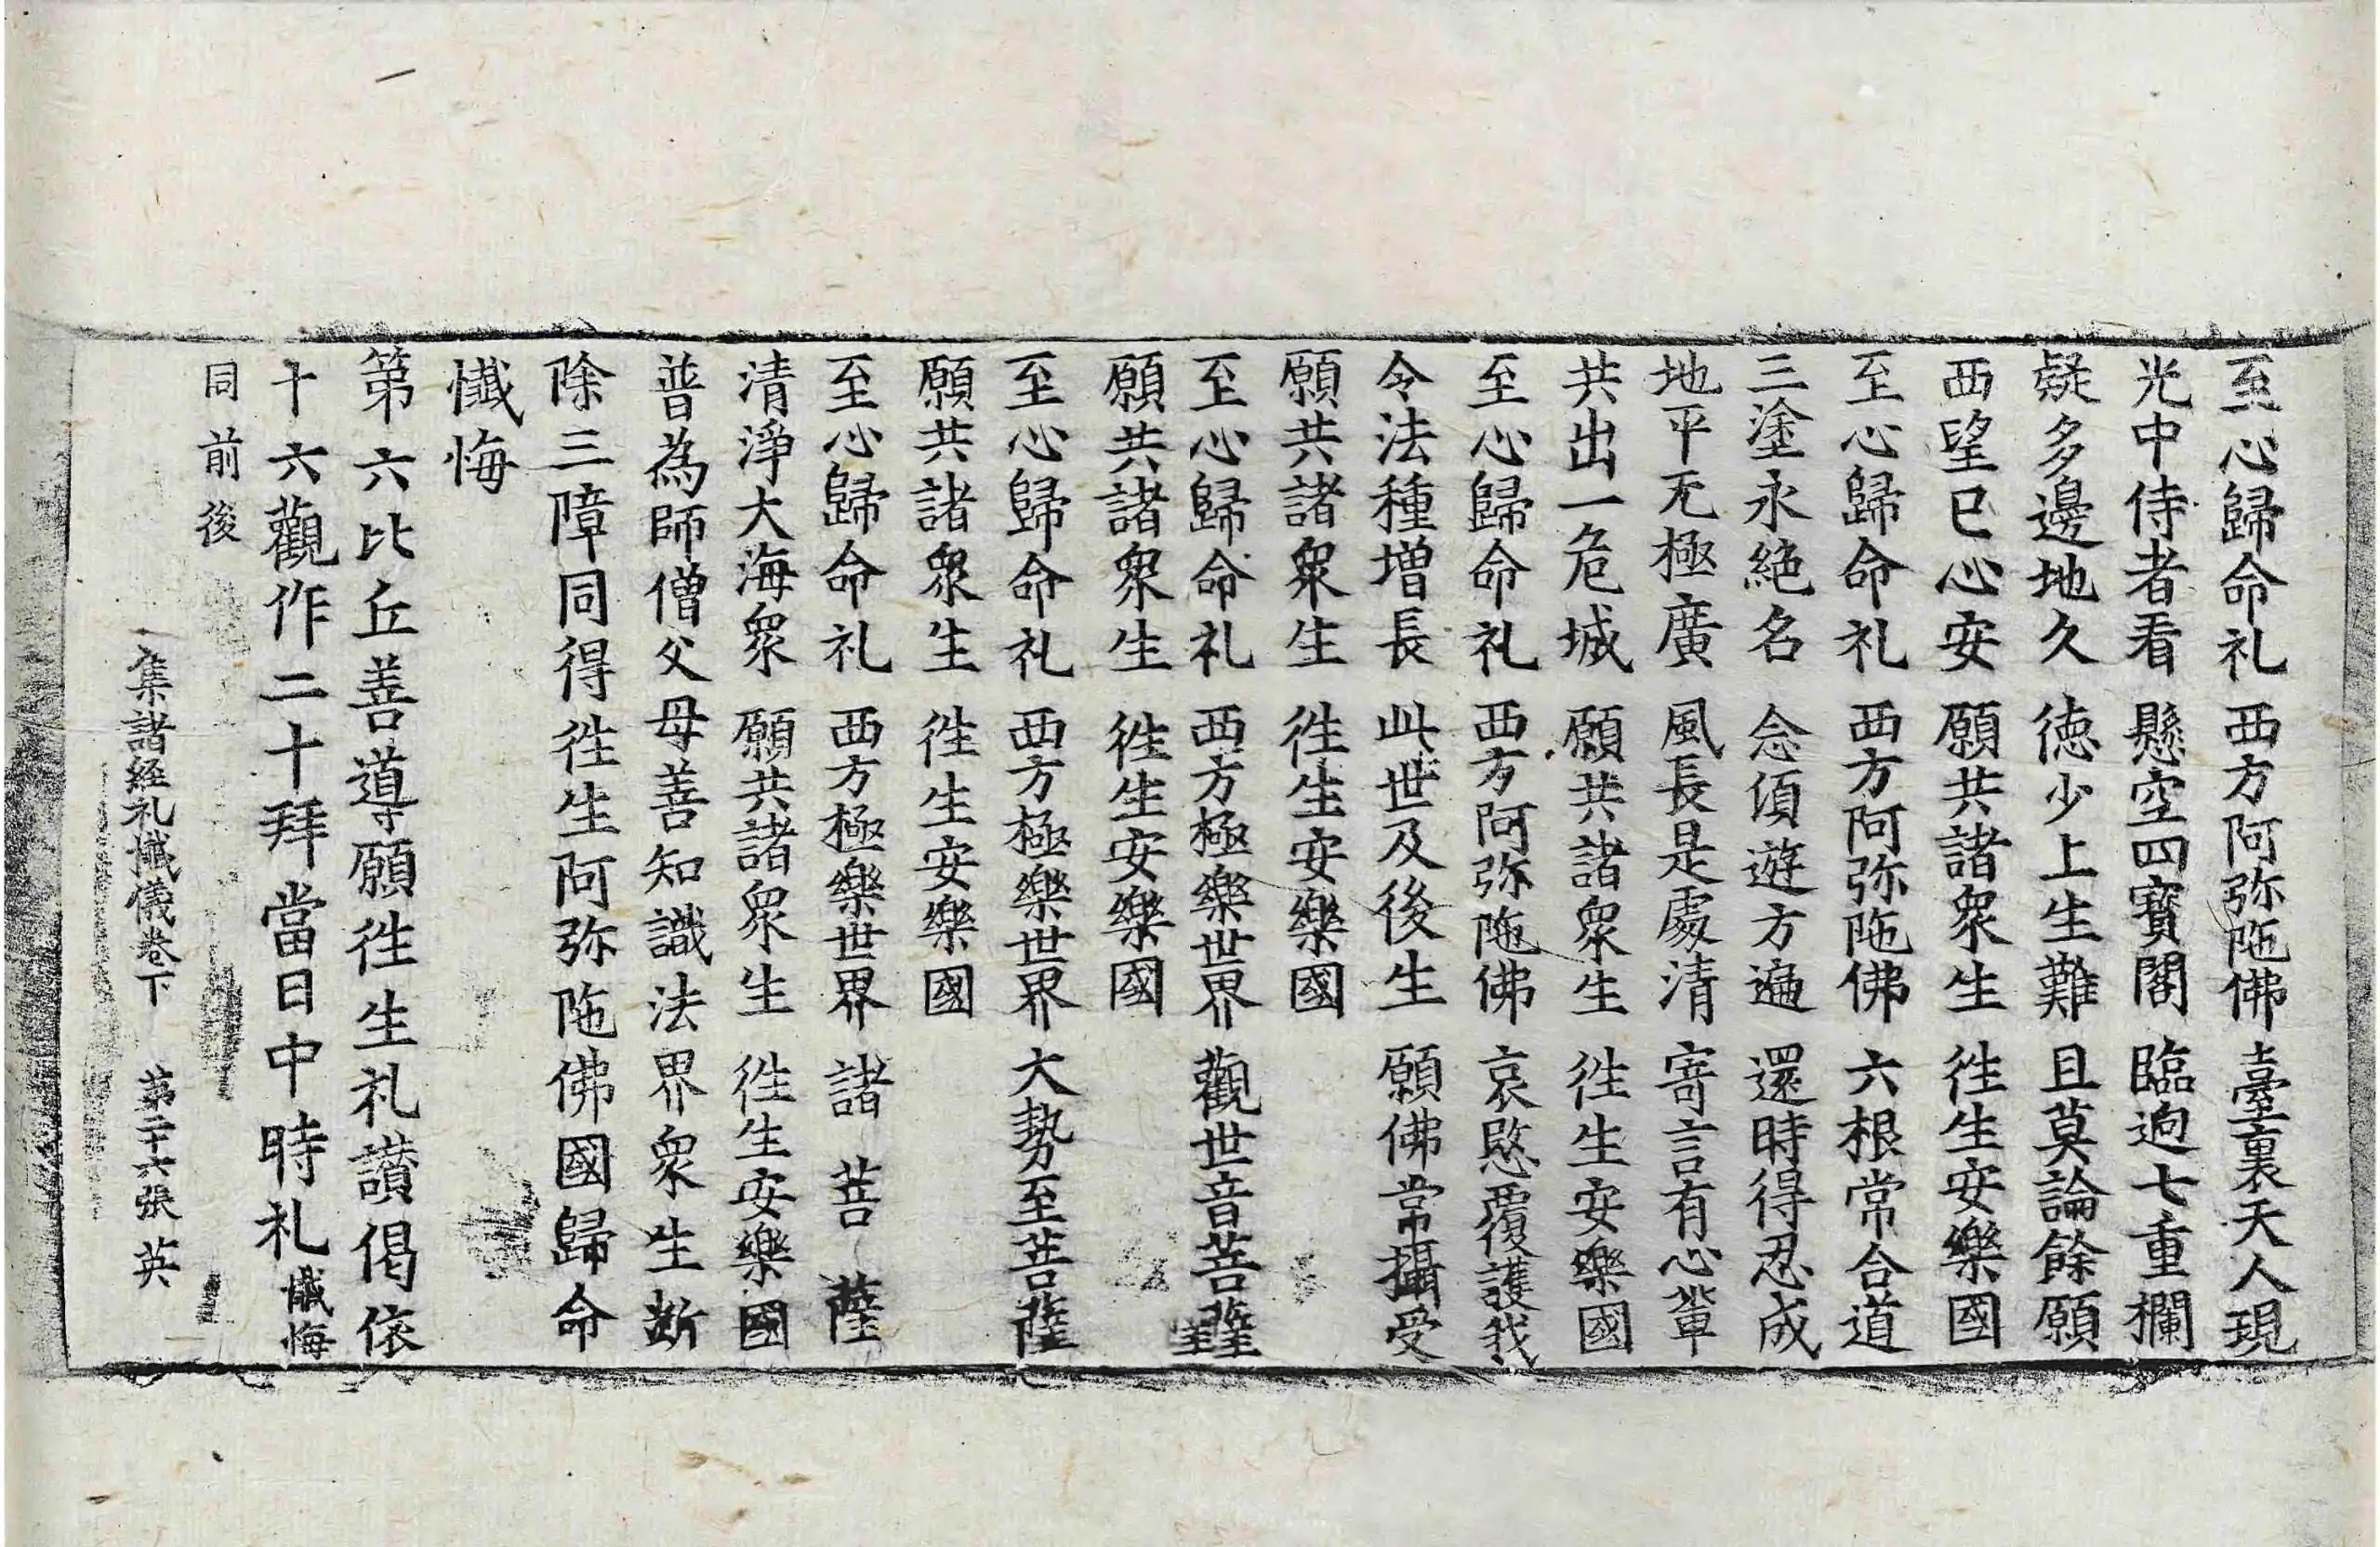 至心歸命礼 西方阿弥陁佛 臺裏天人現
光中侍者看 懸空四寳閣 臨逈七重欄
疑多邊地久 徳少上生難 且莫論餘願
西望已心安 願共諸衆生 徃生安樂國
至心歸命礼 西方阿弥陁佛 六根常合道
三塗永絶名 念須遊方遍 還時得忍成
地平无極廣 風長是處清 寄言有心輩
共出一危城 願共諸衆生 徃生安樂國
至心歸命礼 西方阿弥陁佛 哀愍覆護我
令法種増長 此世及後生 願佛常攝受
願共諸衆生 徃生安樂國
至心歸命礼 西方極樂世界 觀世音菩薩
願共諸衆生 徃生安樂國
至心歸命礼 西方極樂世界 大勢至菩薩
願共諸衆生 徃生安樂國
至心歸命礼 西方極樂世界 諸菩薩
清淨大海衆 願共諸衆生 徃生安樂國
普為師僧父母善知識法界衆生断
除三障同得徃生阿弥陁佛國歸命
懺悔
第六比丘善導願徃生礼讃偈依
十六觀作二十拜當日中時礼懺悔
同前後
集諸經礼懺儀卷下 第二十六張 英